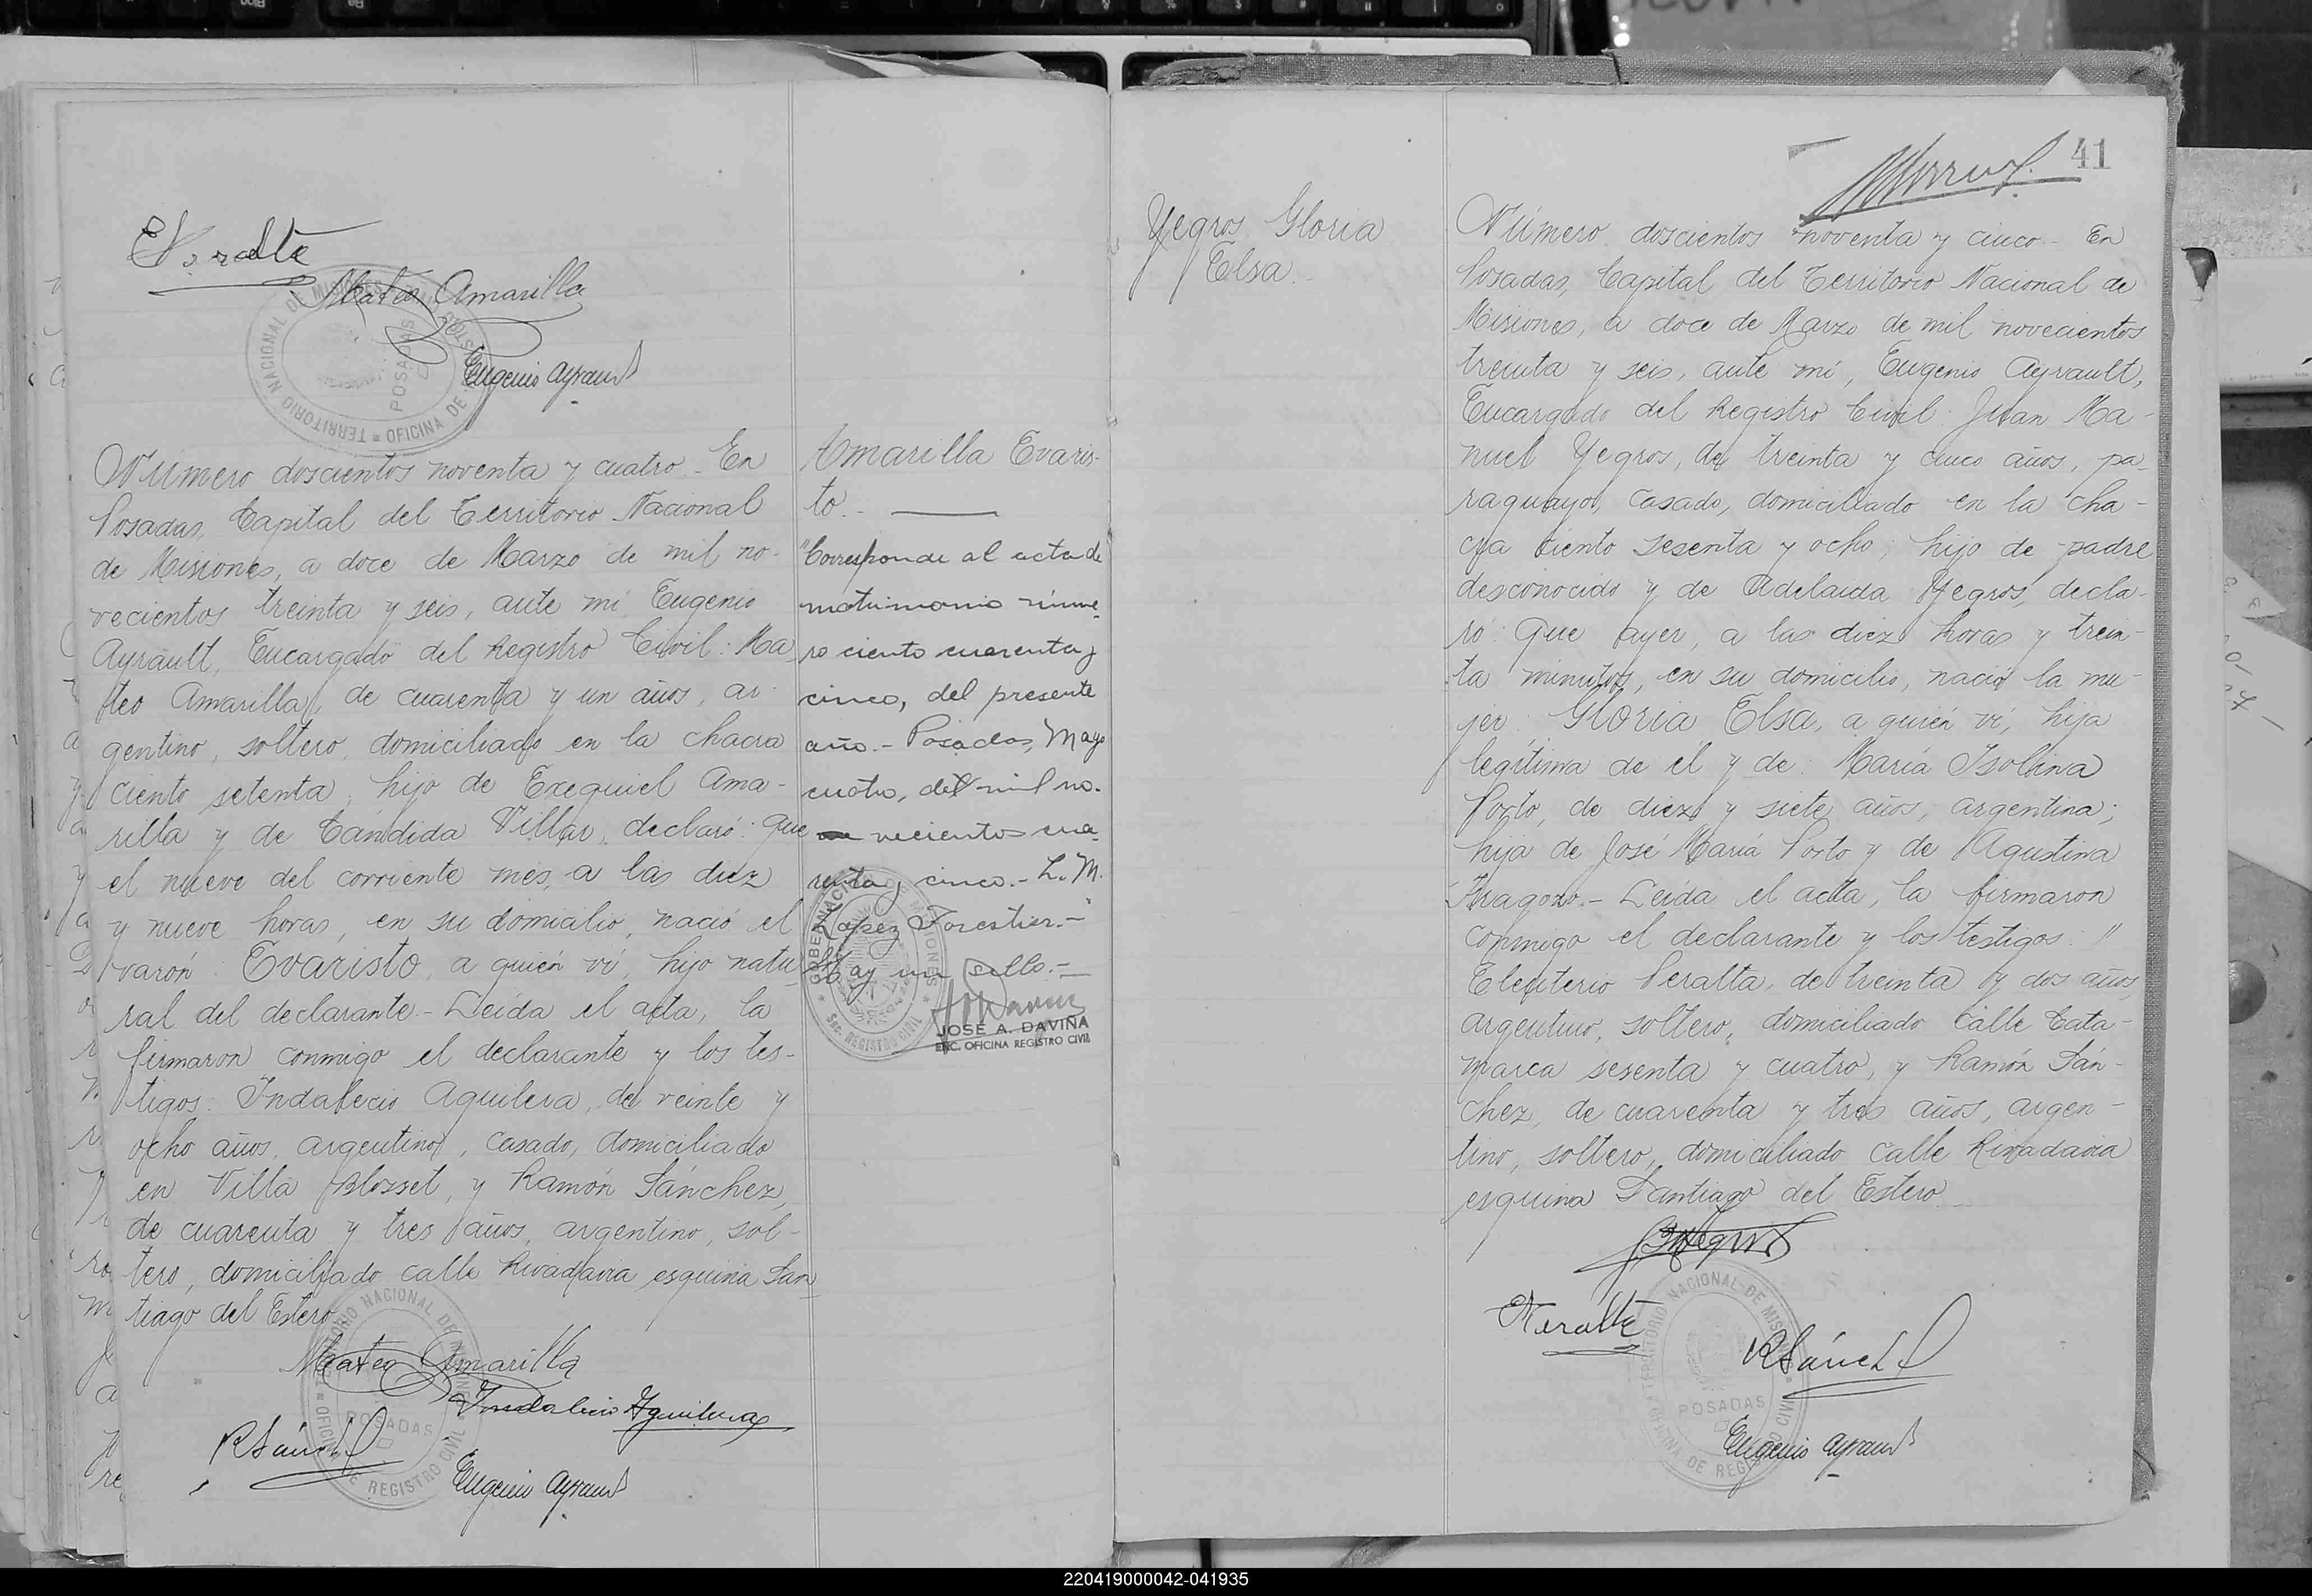 EPeralta
Mateo Amarilla
TERRITORIO NACIONAL DE MISIONES
OFICINA DE
POSADAS
Eugenio Ayrault
Número doscientos noventa y cuatro.- En
Posadas, Capital del Territorio Nacional
de Misiones, a doce de Marzo de mil no-
vecientos treinta y seis, ante mí Eugenio
Ayrault, Encargado del Registro Civil: Ma
teo Amarilla, de cuarenta y un años, ar-
gentino, soltero, domiciliado en la chacra
ciento setenta, hijo de Exequiel Ama-
rilla y de Cándida Villar, declaró: que
el nueve del corriente mes, a las diez
y nueve horas, en su domicilio, nació el
varón: Evaristo, a quién ví, hijo natu-
ral del declarante.- Leída el acta, la
firmaron conmigo el declarante y los tes-
tigos: Indalecio Aguilera, de veinte y
ocho años, argentino, casado, domiciliado
en Villa Blosset, y Ramón Sánchez,
de cuarenta y tres años, argentino, sol-
tero, domiciliado calle Rivadavia esquina San
tiago del Estero.
Mateo Amarilla
Indalecio Aguilera
RSánchez
Eugenio Ayrault
TERRITORIO NACIONAL DE MISIONES
OFICINA DE REGISTRO CIVIL
POSADAS
Amarilla Evaris-
to.-
"Corresponde al acta de
matrimonio núme-
ro ciento cuarenta y
cinco, del presente
año.- Posadas, Mayo
cuatro, del mil no-
vecientos cua-
renta y cinco.- L. M.
Lopez Forestier.-"
Hay un sello.-
GOBERNACION MISIONES
SEC. REGISTRO CIVIL
JOSE A. DAVIÑA
ENC. OFICINA REGISTRO CIVIL
41
Yegros Gloria
Elsa.-
Número doscientos noventa y cinco.- En
Posadas, Capital del Territorio Nacional de
Misiones, a doce de Marzo de mil novecientos
treinta y seis, ante mí, Eugenio Ayrault,
Encargado del Registro Civil: Juan Ma-
nuel Yegros, de treinta y cinco años, pa-
raguayo, casado, domiciliado en la cha-
cra ciento sesenta y ocho; hijo de padre
desconocido y de Adelaida Yegros, decla-
ró: Que ayer, a las diez horas y trein-
ta minutos, en su domicilio, nació la mu-
jer: Gloria Elsa, a quién ví, hija
legítima de él y de: María Isolina
Porto, de diez y siete años, argentina;
hija de José María Porto y de Agustina
Fragozo.- Leída el acta, la firmaron
conmigo el declarante y los testigos:
Eleuterio Peralta, de treinta y dos años,
argentino, soltero, domiciliado Calle Cata-
marca sesenta y cuatro, y Ramón Sán-
chez, de cuarenta y tres años, argen-
tino, soltero, domiciliado calle Rivadavia
esquina Santiago del Estero.-
EPeralta
RSánchez
TERRITORIO NACIONAL DE MISIONES
OFICINA DE REGISTRO CIVIL
POSADAS
Eugenio Ayrault
220419000042-041935